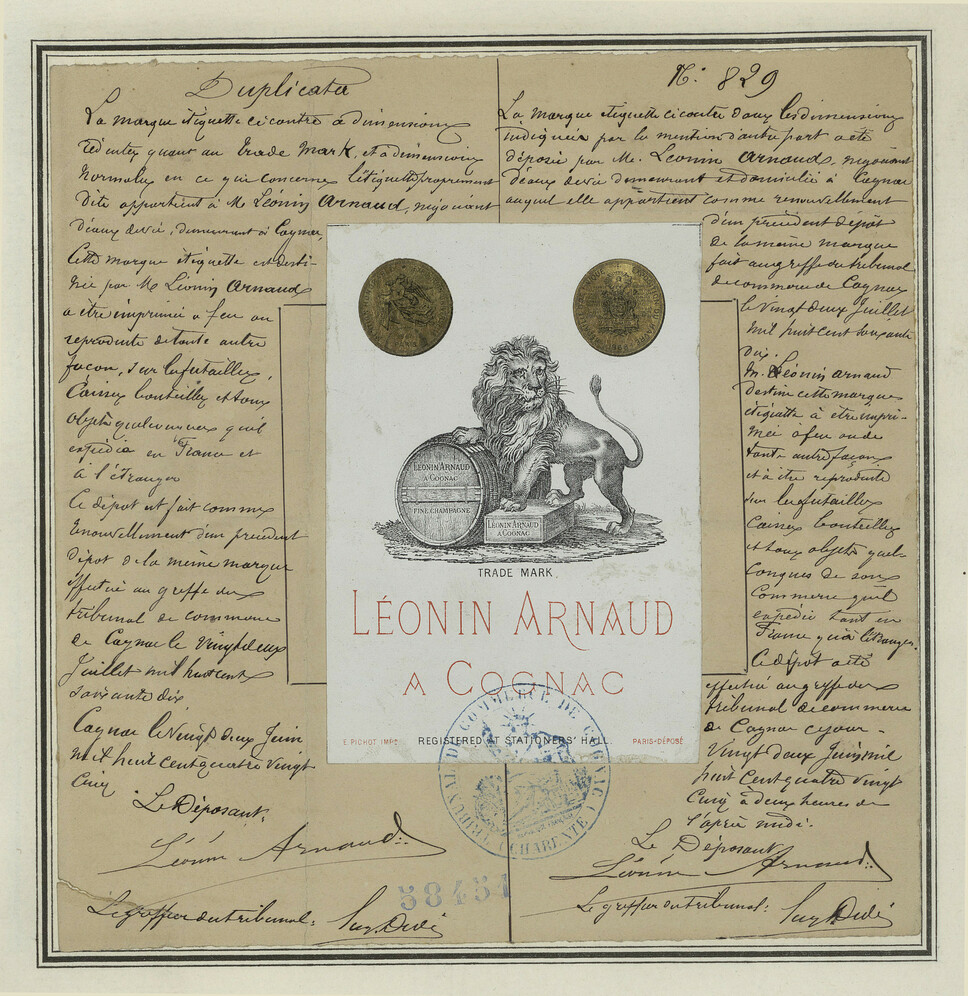 Duplicata
La marque étiquette ci contre à dimensions
réduites quant au trade mark, et à dimensions
Normales en ce qui concerne l'étiquette proprement
dite appartient à M Léonin Arnaud, négociant
d'eaux de vie, demeurant à Cognac,
Cette marque étiquette est desti-
née par M Léonin Arnaud
a être imprimée a feu ou
reproduite de toute autre
façon, sur les futailles,
Caisses bouteilles et tous
objets quelconques qu'il
expédie en France et
à l'étranger
Ce dépot est fait comme
renouvellement d'un précédent
dépot de la même marque
effectué au greffe du
tribunal de commerce
de Cognac le vingt deux
Juillet mil huit cent
soixante dix
Cognac le Vingt deux Juin
mil huit cent quatre vingt
Cinq
Le Déposant,
Léonin Arnaud
Le greffier du tribunal:
N°: 829
La marque étiquette ci contre dont les dimensions
indiquées par la mention d'autre part a été
déposée par Mr. Léonin Arnaud, négociant
d'eaux de vie demeurant et domicilié à Cognac
auquel elle appartient comme renouvellement
d'un précédent dépôt
de la même marque
fait au greffe du tribunal
de commerce de Cognac
le Vingt deux Juillet
mil huit cent soixante
dix.
M. Léonin Arnaud
destine cette marque
étiquette à être impri-
mée à feu ou de
toute autre façon
et à être reproduite
sur les futailles
Caisses bouteilles
et tous objets quel-
conques de son
Commerce qu'il
expédie tant en
France qu'à l'étranger.
Ce dépôt a été
effectué au greffe du
tribunal de commerce
de Cognac ce jour
Vingt deux Juin mil
huit Cent quatre vingt
Cinq à deux heures de
l'après midi.
Le Déposant
Léonin Arnaud
Le greffier du tribunal:
LÉONIN ARNAUD
A COGNAC
FINE CHAMPAGNE
LÉONIN ARNAUD
A COGNAC
TRADE MARK
LÉONIN ARNAUD
A COGNAC
E. PICHOT IMP. REGISTERED AT STATIONERS' HALL. PARIS-DÉPOSÉ
TRIBUNAL DE COMMERCE DE COGNAC (CHARENTE)
58451